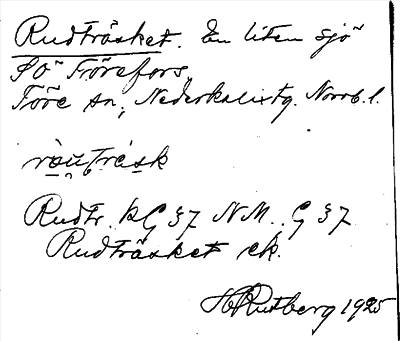 Rudträsket. En liten sjö
SO Törefors,
Töre sn, Nederkalix tg. Norrb. l.
ròu̯trɛsk
Rudtr. KG 37 NM. G 37
Rudträsket ek.
H Rutberg 1925